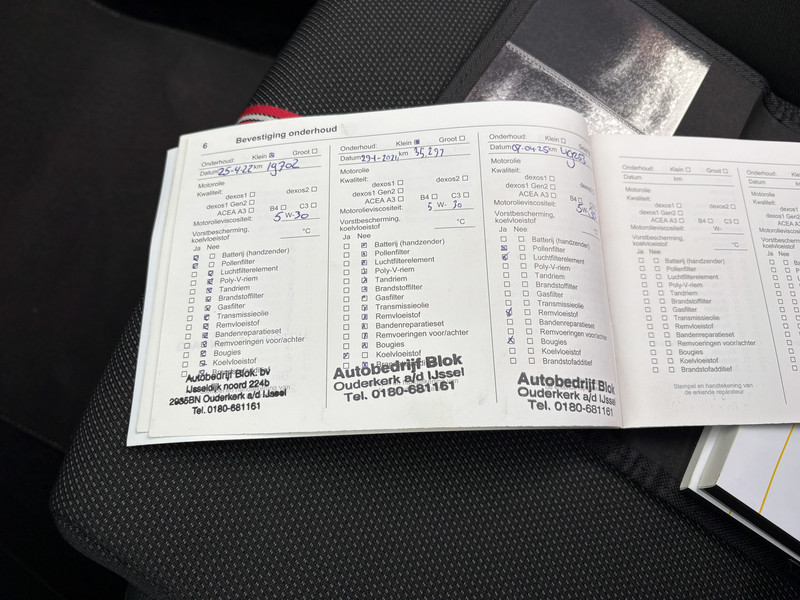 6
Bevestiging onderhoud
Onderhoud: Klein Groot
Datum 25-4-22 km 19702
Motorolie
Kwaliteit:
dexos1 dexos2
dexos1 Gen2
ACEA A3 B4 C3
Motorolieviscositeit: 5 W-30
Vorstbescherming, koelvloeistof °C
Ja Nee
Batterij (handzender)
Pollenfilter
Luchtfilterelement
Poly-V-riem
Tandriem
Brandstoffilter
Gasfilter
Transmissieolie
Remvloeistof
Bandenreparatieset
Remvoeringen voor/achter
Bougies
Koelvloeistof
Autobedrijf Blok. bv
IJsseldijk noord 224b
2935BN Ouderkerk a/d IJssel
Tel. 0180-681161
Onderhoud: Klein Groot
Datum km 35,297
Motorolie
Kwaliteit:
dexos1 dexos2
dexos1 Gen2
ACEA A3 B4 C3
Motorolieviscositeit: 5 W- 30
Vorstbescherming,
koelvloeistof °C
Ja Nee
Batterij (handzender)
Pollenfilter
Luchtfilterelement
Poly-V-riem
Tandriem
Brandstoffilter
Gasfilter
Transmissieolie
Remvloeistof
Bandenreparatieset
Remvoeringen voor/achter
Bougies
Koelvloeistof
Autobedrijf Blok
Ouderkerk a/d IJssel
Tel. 0180-681161
Onderhoud: Klein
Datum 04-25 km
Motorolie
Kwaliteit:
dexos1
dexos1 Gen2
ACEA A3
Motorolieviscositeit:
Vorstbescherming,
koelvloeistof
Ja Nee
Batterij (handzender)
Pollenfilter
Luchtfilterelement
Poly-V-riem
Tandriem
Brandstoffilter
Gasfilter
Transmissieolie
Remvloeistof
Bandenreparatieset
Remvoeringen voor/achter
Bougies
Koelvloeistof
Brandstofadditief
Autobedrijf Blok
Ouderkerk a/d IJssel
Tel. 0180-681161
Onderhoud: Klein Groot
Datum km
Motorolie
Kwaliteit:
dexos1 dexos2
dexos1 Gen2
ACEA A3 B4 C3
Motorolieviscositeit: W-
Vorstbescherming,
koelvloeistof °C
Ja Nee
Batterij (handzender)
Pollenfilter
Luchtfilterelement
Poly-V-riem
Tandriem
Brandstoffilter
Gasfilter
Transmissieolie
Remvloeistof
Bandenreparatieset
Remvoeringen voor/achter
Bougies
Koelvloeistof
Brandstofadditief
Stempel en handtekening van
de erkende reparateur